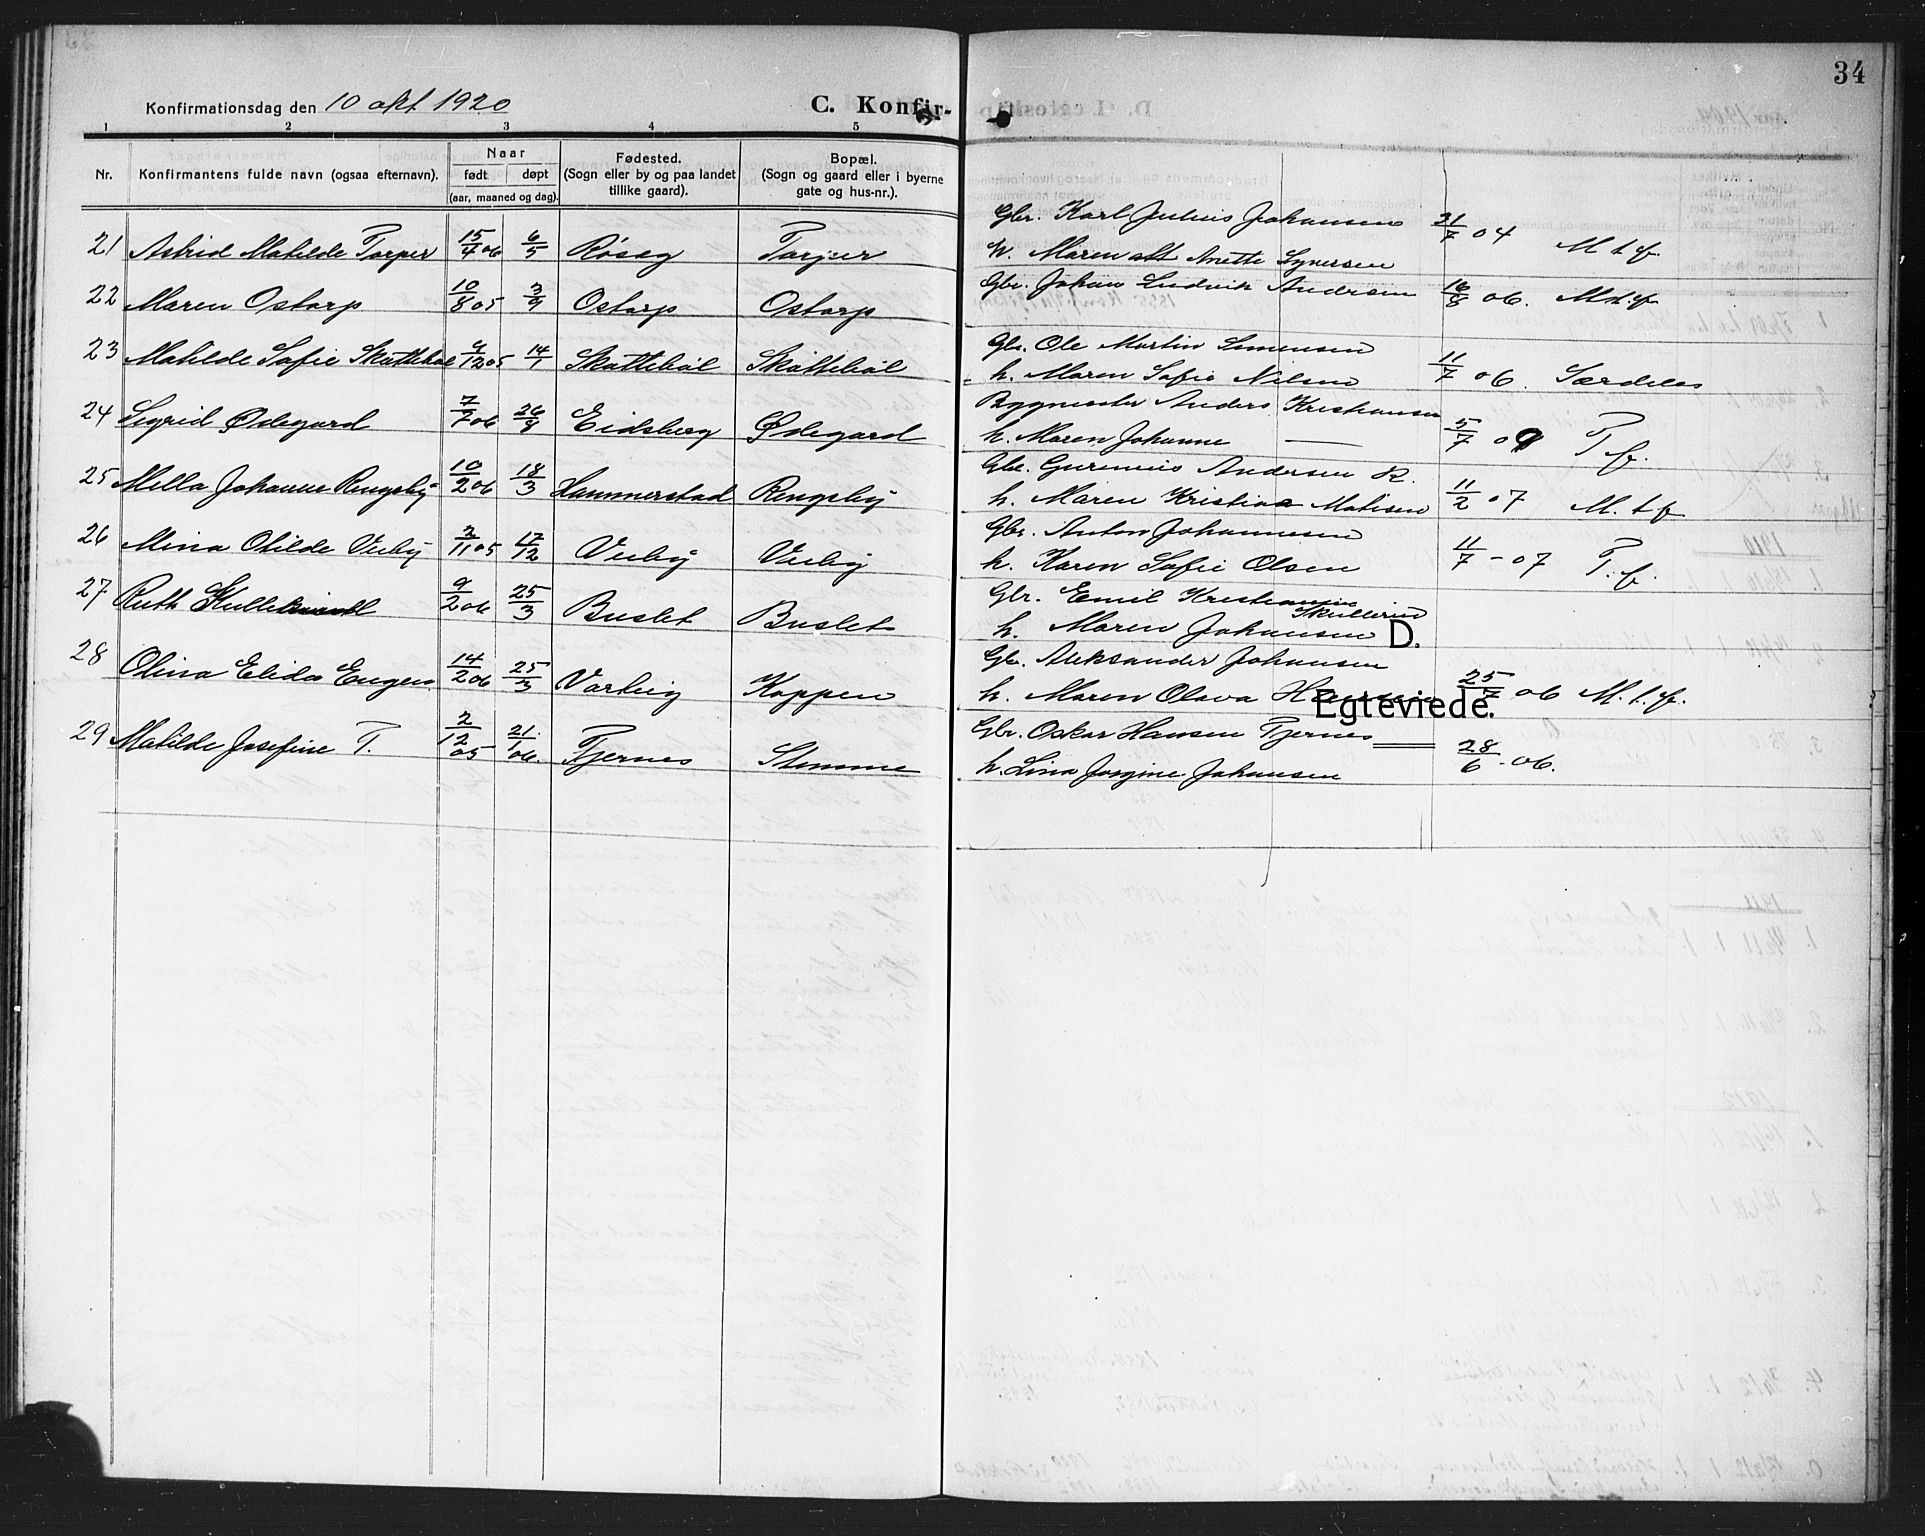 34
Konfirmationsdag den 10 okt 1920
C. Konfir-
1 2 3 4 5
Nr. Konfirmantens fulde navn (ogsaa efternavn). Naar født døpt (aar, maaned og dag). Fødested. (Sogn eller by og paa landet tillike gaard). Bopæl. (Sogn og gaard eller i byerne gate og hus-nr.).
21 Astrid Matilde Torper 15/4 06 6/5 Torper
Gbr. Karl Julius Johansen 31/7 04 M t. f.
h. Maren Anette Syversen
22 Maren Ostorp 10/8 05 3/9 Ostorp Ostorp
Gbr. Johan Ludvik Andersen 16/8 06. M t. f.
23 Matilde Sofie Skøttebøl 9/12 05 14/1 Skøttebøl Skøttebøl
Gbr. Ole Martin Simensen
h. Maren Sofie Nilsen 11/7 06. Særdeles
24 Sigrid Ødegard 7/7 06 26/8 Eidsberg Ødegard
Bygmester Anders Kristiansen
h. Maren Johanne — 5/7 09 T. f.
25 Mella Johanne Rengsby 10/2 06 18/3 Hammerstad Rengsby
Gbr. Andersen R.
h. Maren Kristine Matisen 11/2 07 M. t. f.
26 Mina Otilde Veeby 3/11 05 17/12 Veeby Veeby
Gbr. Anton Johannesen
h. Karen Sofie Olsen 11/7 - 07 T. f.
27 Ruth 9/2 06 25/3 Buslet Buslet
Gbr. Emil Kristiansen Skullerud
h. Maren Johansen D.
28 Olina Elida Engen 14/2 06 25/3 Varbig Koppen
Gbr. Aleksander Johansen
h. Maren Olava 25/7 06 M. t. f.
Egteviede.
29 Matilde Josefine T. 2/12 05 21/1 06. Tjernes Stomme
Gbr. Oskar Hansen Tjernes
h. Lina Jorgine Johansen 28/6 - 06.